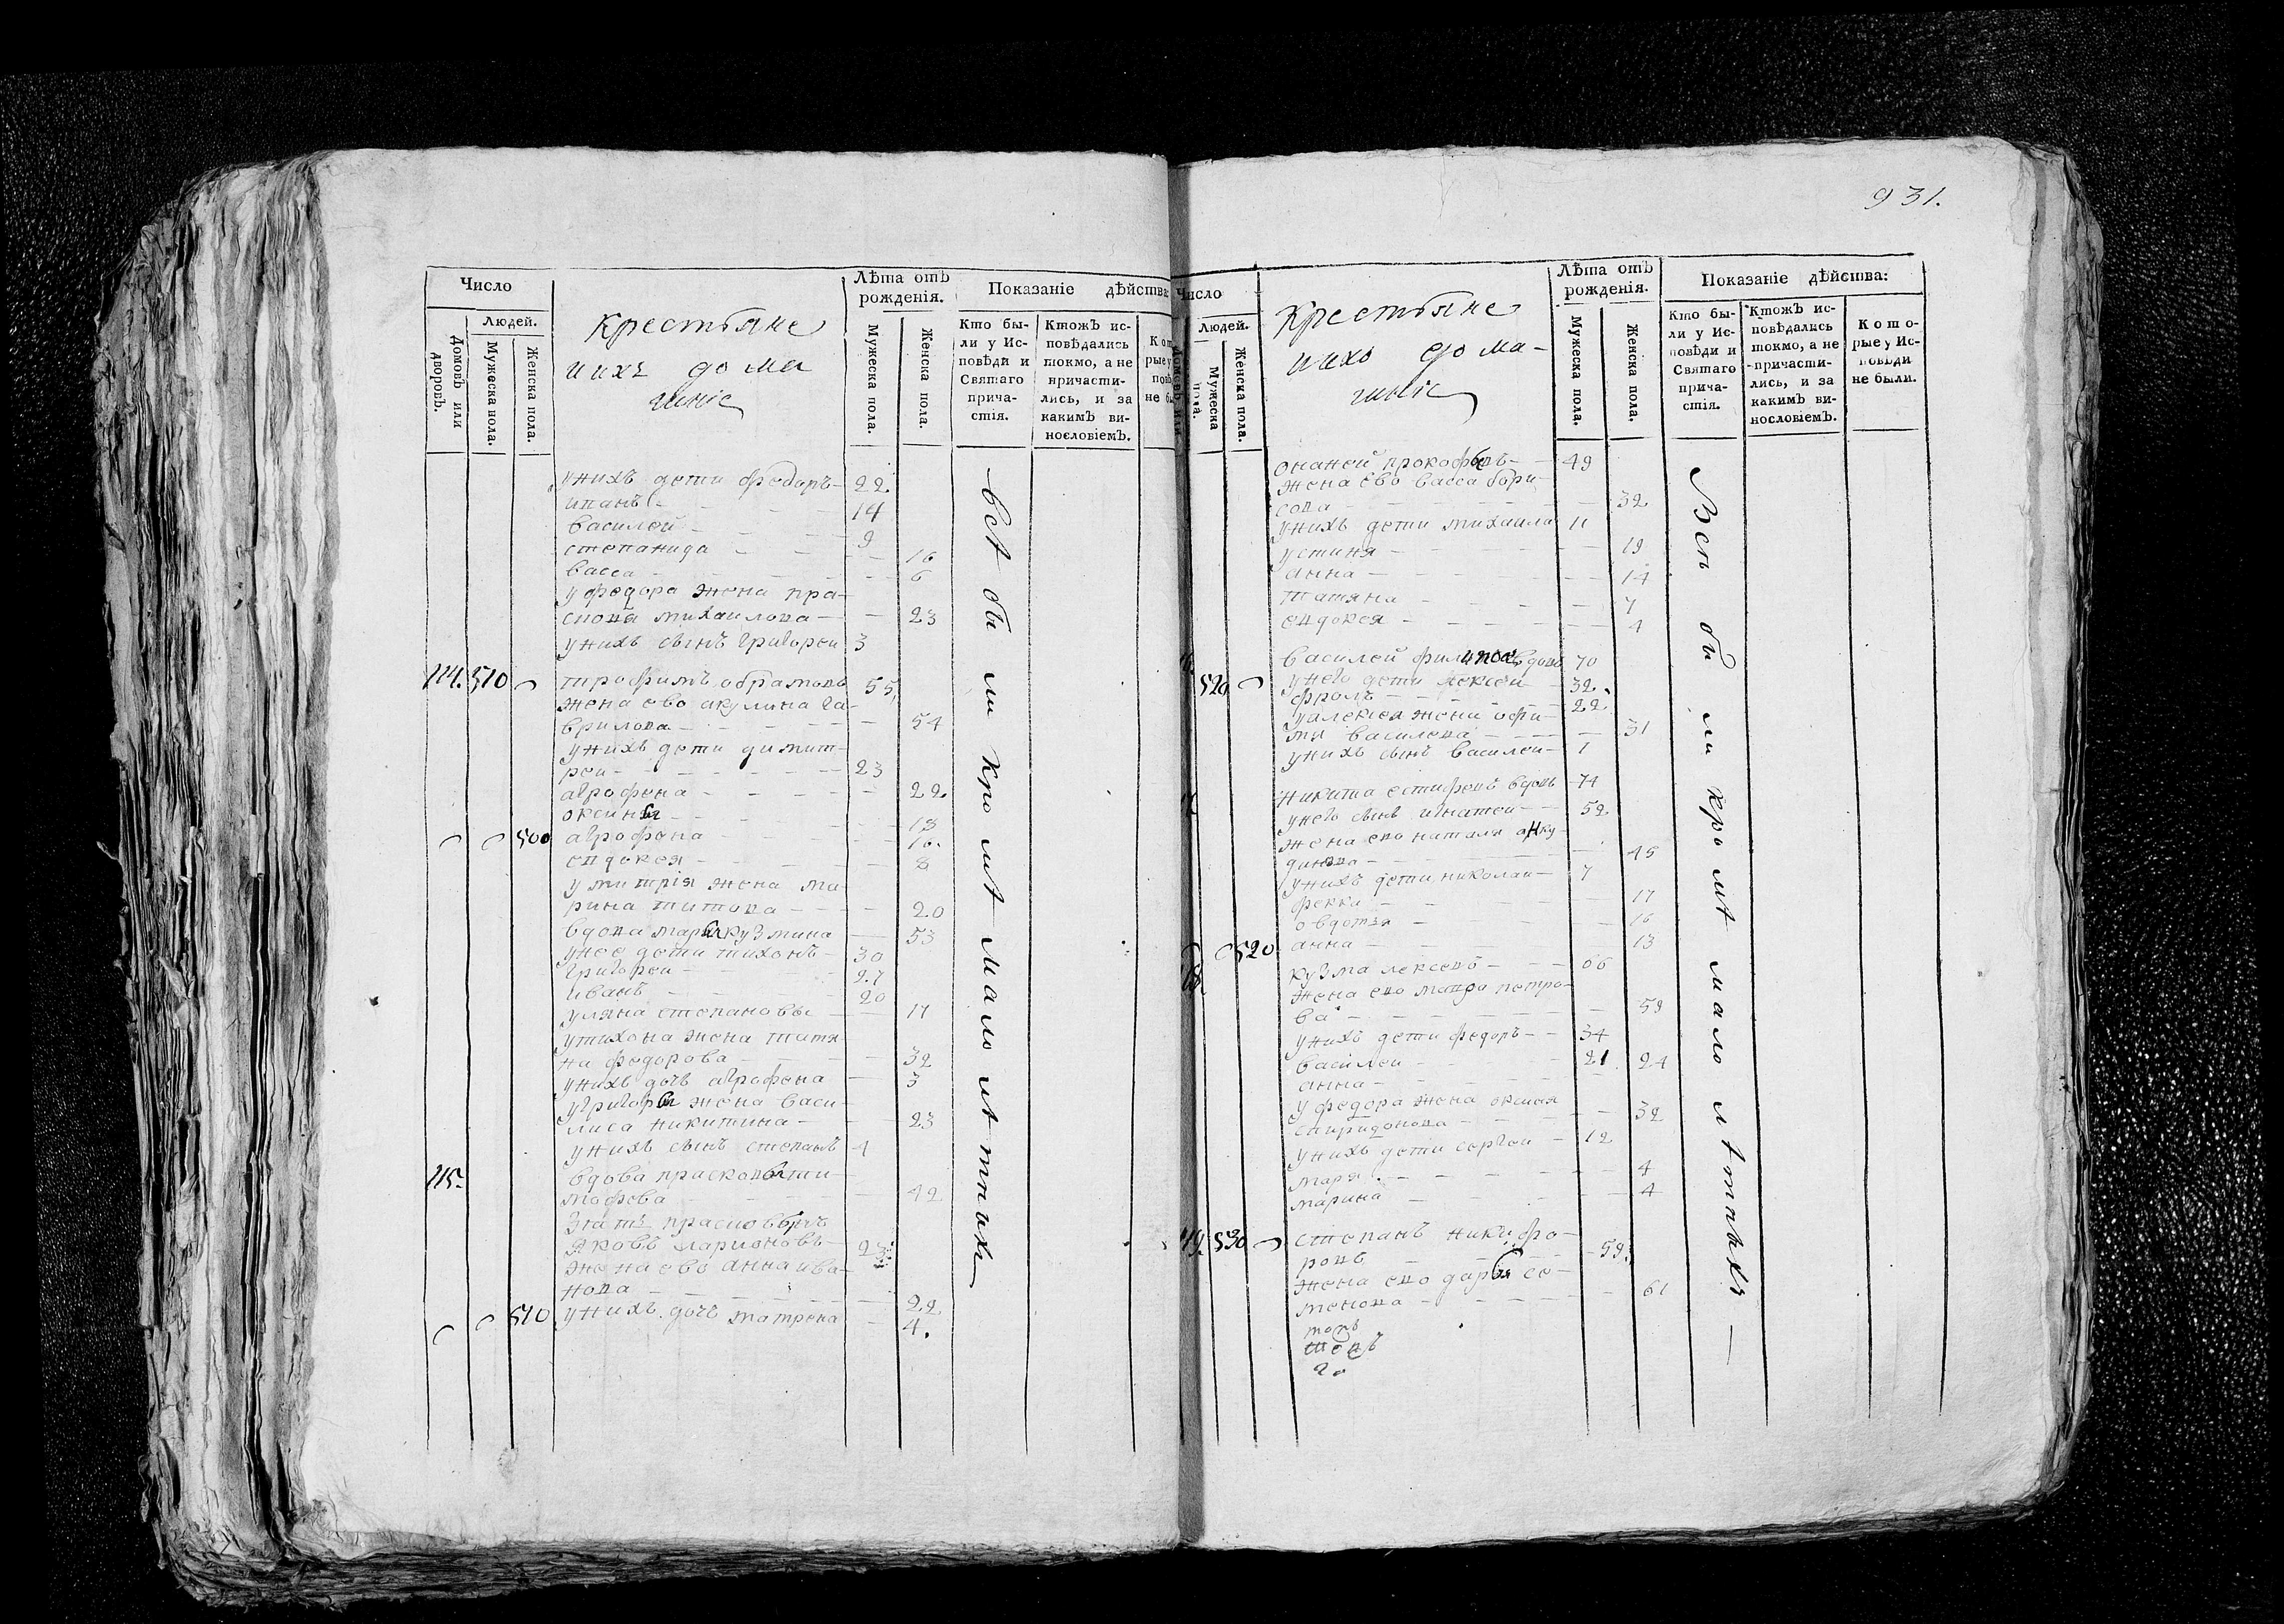 Число
Людей.
Домовъ или дворовъ.
Мужеска пола.
Женска пола.
Крестьяне
иихъ дома
шніе
Лѣта отъ
рожденія.
Мужеска пола.
Женска пола.
Показаніе дѣйства
Кто бы-
ли у Ис-
повѣди и
Святаго
прича-
стія.
Ктожъ ис-
повѣдались
токмо, а не
причасти-
лись, и за
какимъ ви-
нословіемъ.
унихъ дети федоръ 22
иванъ 14
василей 9
степанида 16
васса 6
уфедора жена пра-
сковя михаилова 23
унихъ сынъ григореи 3
114. 510 трофимъ обрамовъ 55
жена ево акулина га-
врилова 54
унихъ дети димит-
реи 23
агрофена 22
оксинья 18
500 агрофена 16
евдокея 8
умитрія жена ма-
рина титова 20
вдова марья кузмина 53
унее дети тихонъ 30
григореи 27
иванъ 20
уляна степановы 17
утихона жена татя-
на федорова 32
унихъ дочь агрофена 3
угригорья жена васи-
лиса никитина 23
унихъ сынъ степанъ 4
115. вдова прасковья ти-
мофева 42
зять прасковьинъ
яковъ ларионовъ 23
жена ево анна ива-
нова 22
510 унихъ дочь матрена 4.
всѣ бы ли кро мѣ мало лѣтныхъ
931.
Число
Людей.
Мужеска пола.
Женска пола.
Крестьяне
иихъ дома-
шніе
Лѣта отъ
рожденія.
Мужеска пола.
Женска пола.
Показаніе дѣйства:
Кто бы-
ли у Ис-
повѣди и
Святаго
прича-
стія.
Ктожъ ис-
повѣдались
токмо, а не
причасти-
лись, и за
какимъ ви-
нословіемъ.
Кото-
рые у Ис-
повѣди
не были.
онаней прокофьевъ 49
жена ево васса бори-
сова 32
унихъ дети михаила 11
устиня 19
анна 14
татяна 7
евдокея 4
василей филипов вдовъ 70
520 унего дети лексеи 32
фролъ 22
уалексея жена офи-
мя василева 31
унихъ сынъ василеи 1
никита естифевъ вдовъ 74
унего сынъ игнатеи 52
жена ево наталя анку-
динова 45
унихъ дети николаи 7
фекла 17
овдотья 16
520 анна 13
кузма лексевъ 66
жена ево мавра петро-
ва 59
унихъ дети федоръ 34
василеи 21
анна 24
уфедора жена оксиня
спиридонова 32
унихъ дети сергеи 12
маря 4
марина 4
530 степанъ никифо-
ровъ 59
жена ево дарья се-
менова 61
Всѣ бы ли кро мѣ мало лѣтныхъ